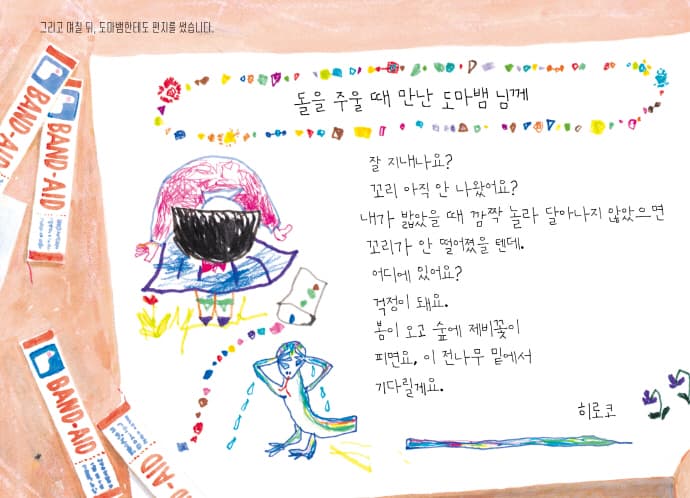 그리고 며칠 뒤, 도마뱀한테도 편지를 썼습니다.
돌을 주울 때 만난 도마뱀 님께
잘 지내나요?
꼬리 아직 안 나왔어요?
내가 밟았을 때 깜짝 놀라 달아나지 않았으면
꼬리가 안 떨어졌을 텐데.
어디에 있어요?
걱정이 돼요.
봄이 오고 숲에 제비꽃이
피면요, 이 전나무 밑에서
기다릴게요.
히로코
BAND-AID
BAND-AID
BAND-AID
BAND-AID